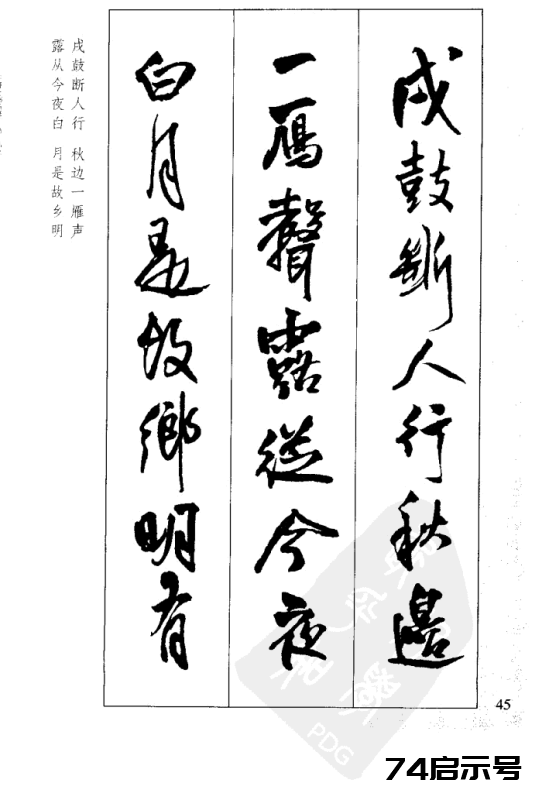 戍鼓斷人行秋邊
一鴈聲露從今夜
白月是故鄉明有
戍鼓断人行 秋边一雁声
露从今夜白 月是故乡明
45
PDG
74启示号